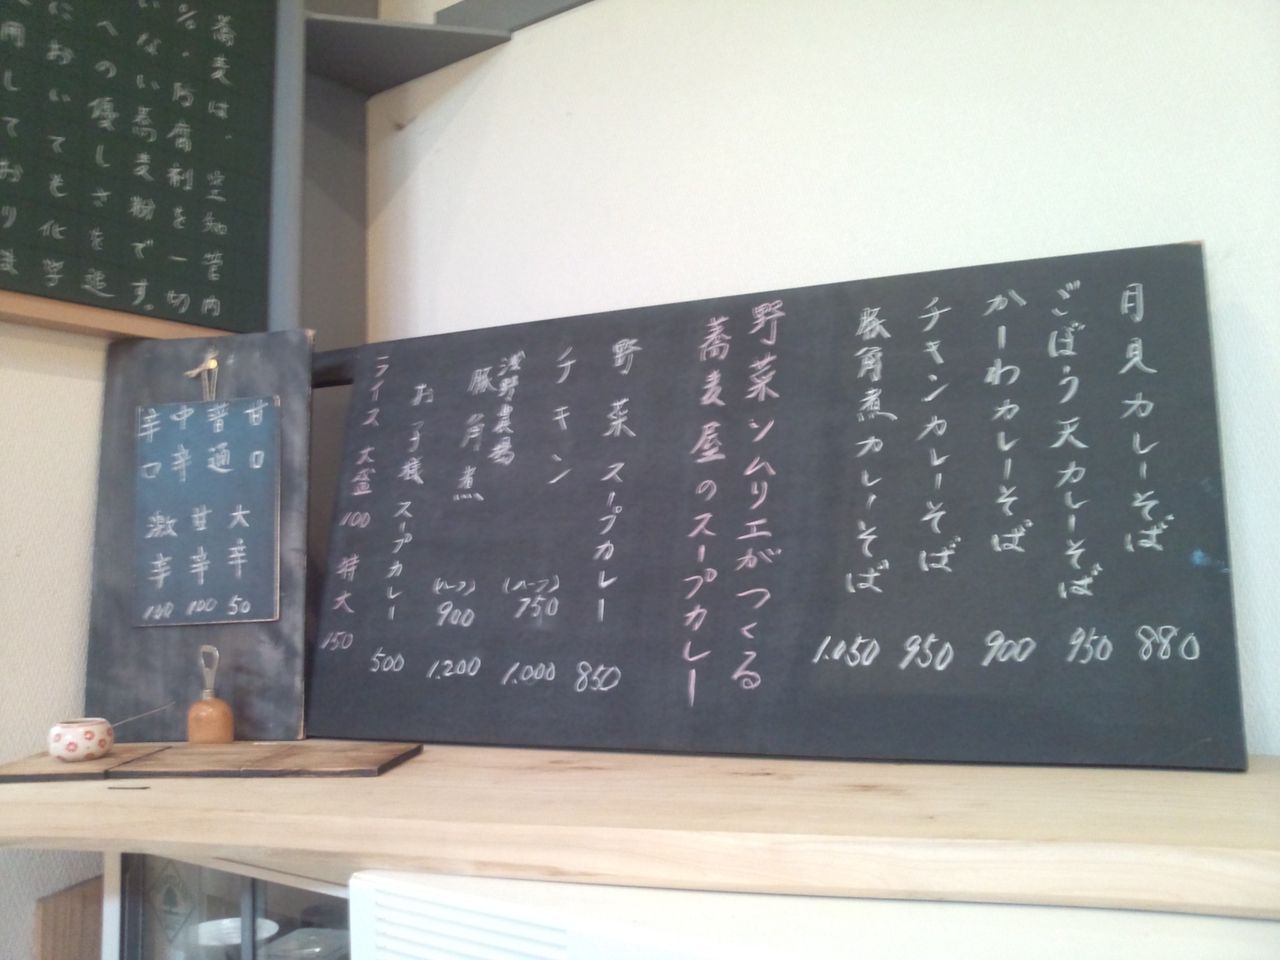 蕎麦は、空知管内
%、防腐剤を一切
いない蕎麦粉です。
への優しさを追
においても化学
用しており
月見カレーそば 880
ごぼう天カレーそば 950
かしわカレーそば 900
チキンカレーそば 950
豚角煮カレーそば 1.050
野菜ソムリエがつくる
蕎麦屋のスープカレー
野菜スープカレー 850
チキン (ハーフ) 750 1.000
浅野農場
豚角煮 (ハーフ) 900 1.200
お子様スープカレー 500
ライス大盛100 特大150
甘口
普通
中辛
辛口
大辛 50
甘辛 100
激辛 100